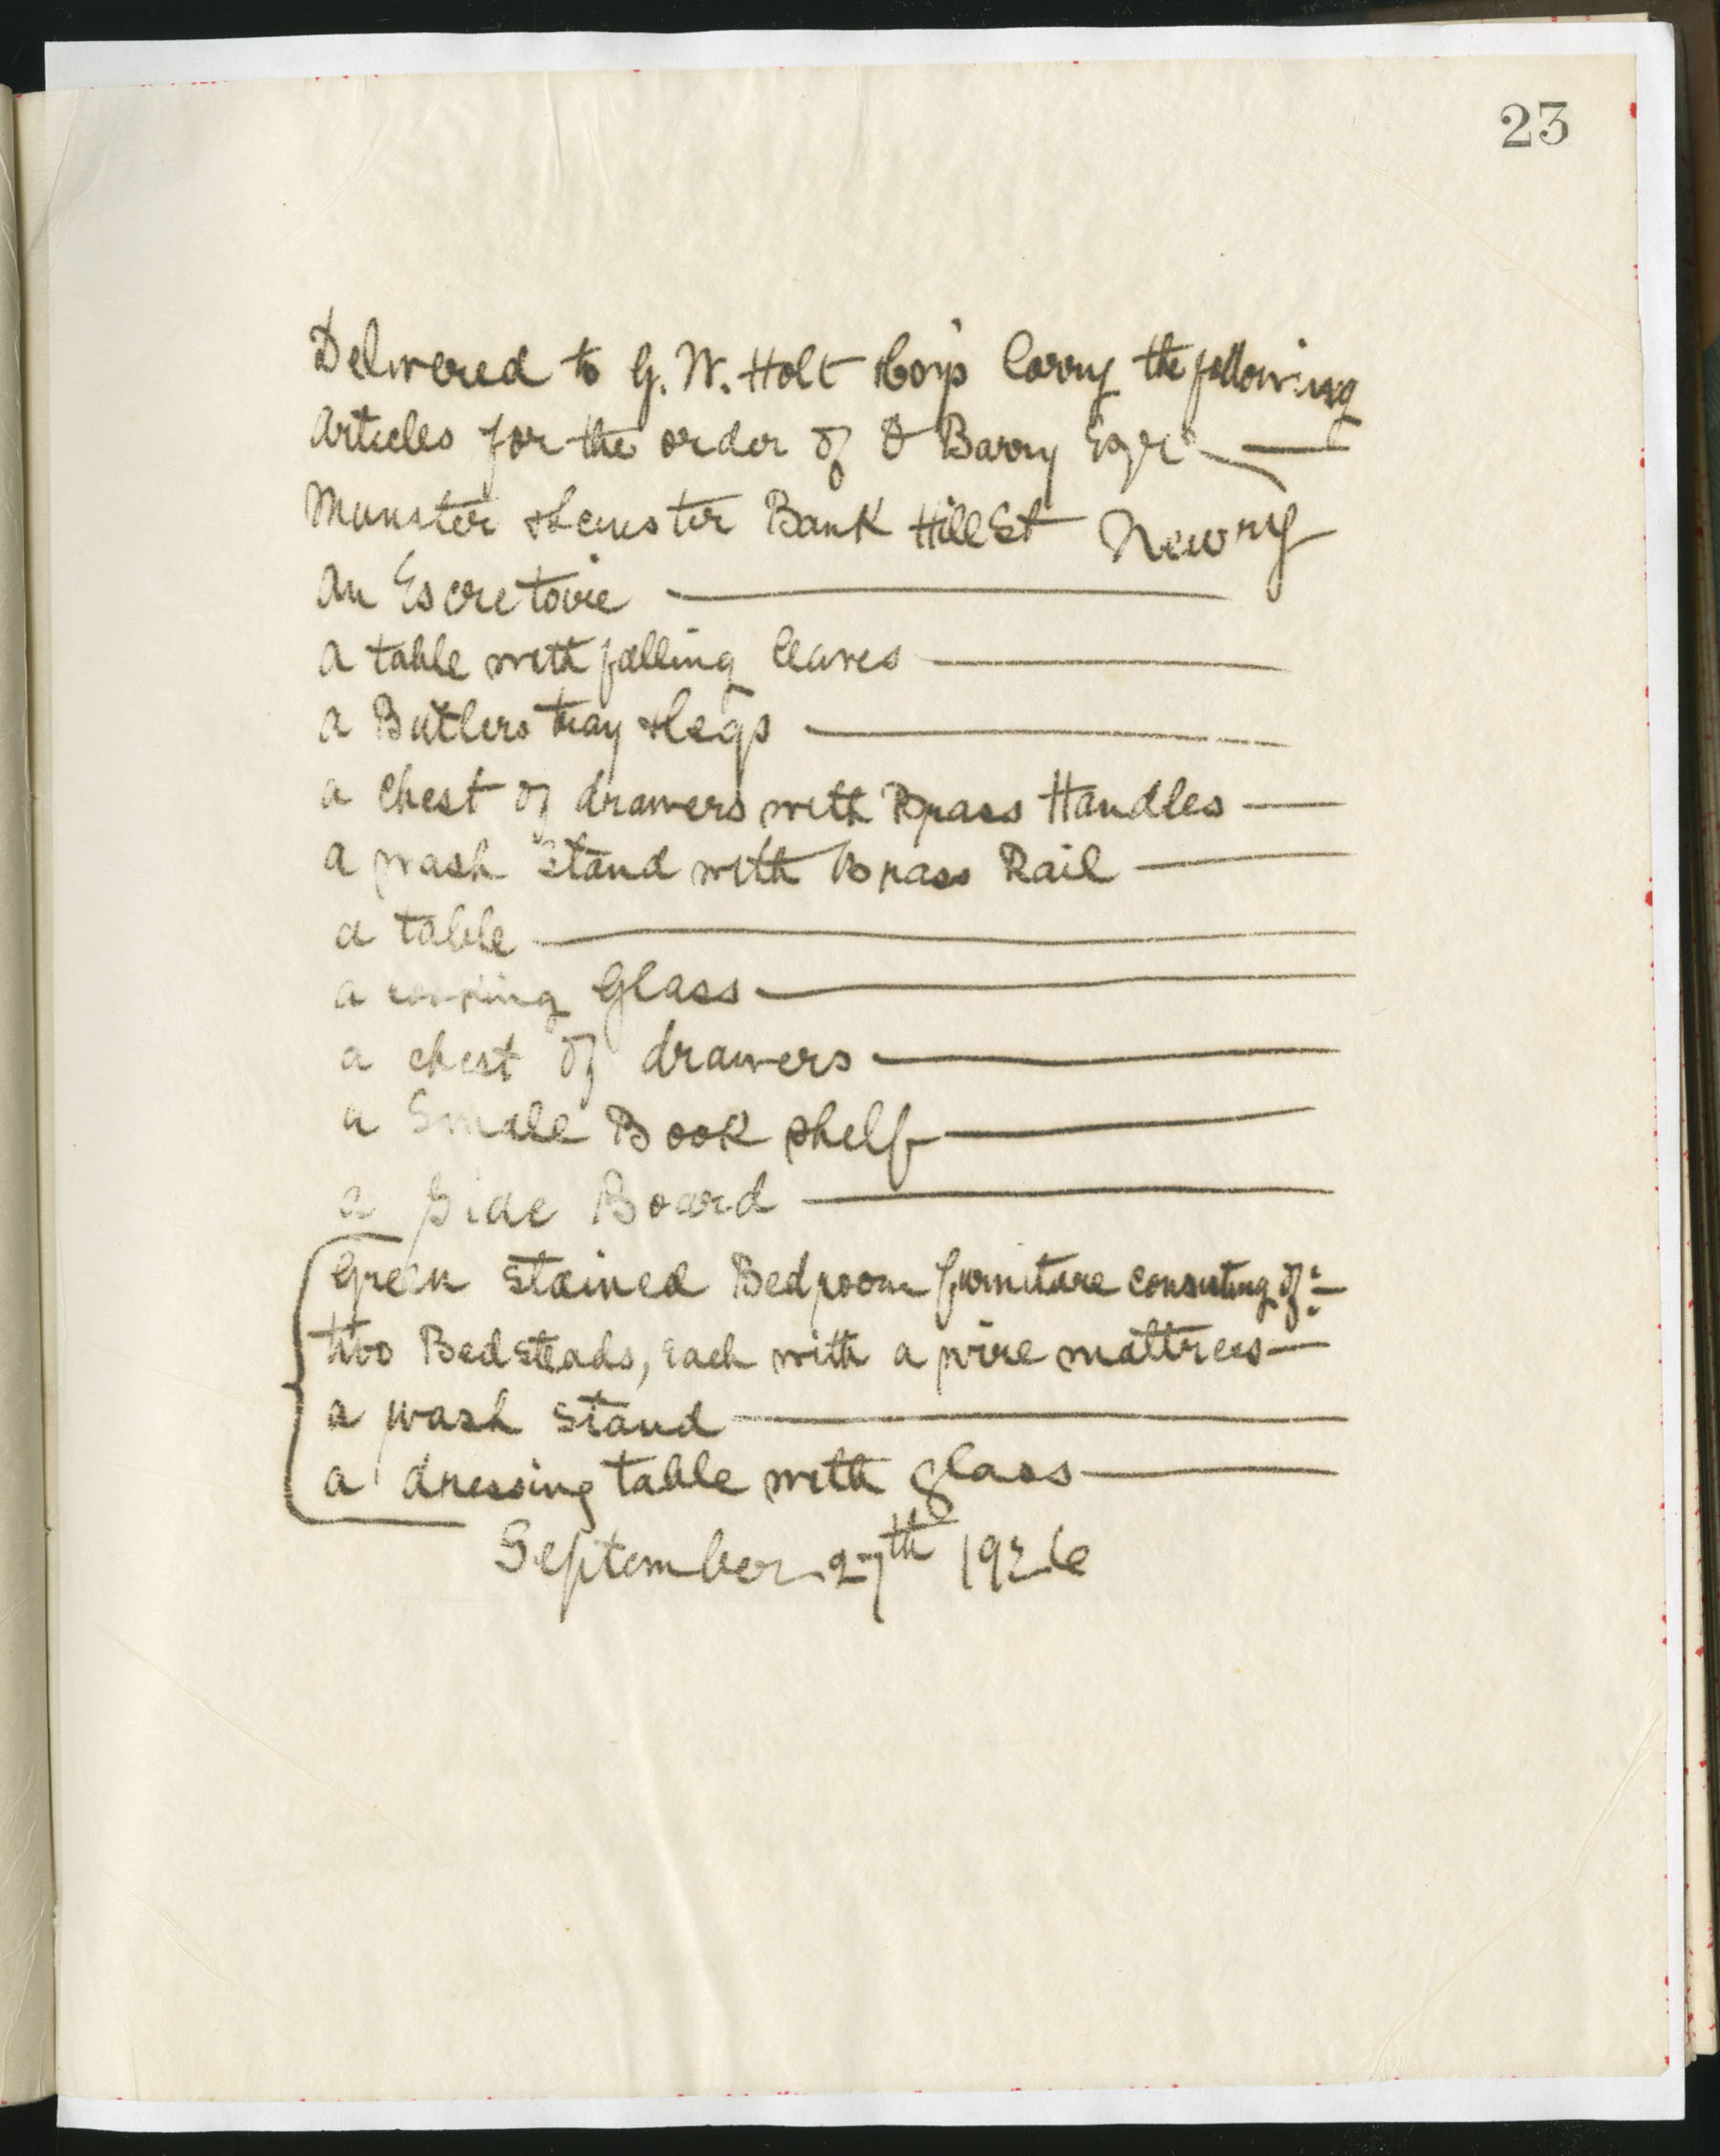 23
Delivered to G. W. Holt & Co's Lorry the following
articles for the order of D Barry Esqre
Munster & Leinster Bank Hill St Newry
an Escretoire
a table with falling leaves
a Butlers tray & legs
a chest of drawers with Brass Handles
a wash stand with Brass Rail
a table
a looking Glass
a chest of drawers
a Small Book shelf
a Side Board
Green stained Bedroom furniture consisting of:—
two Bedsteads, each with a wire mattress
a wash stand
a dressing table with glass
September 27th 1926